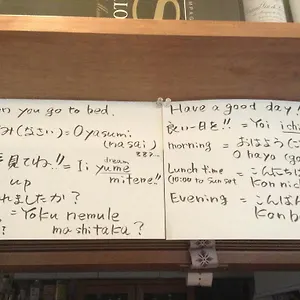 n you go to bed.
み(なさい) = Oyasumi
(nasai)
zzz...
見てね!! = Ii yume
dream
mitene!!
up
れましたか?
= Yoku nemule
mashitaka?
Have a good day!
良い一日を!! = Yoi ichi
morning = おはよう(ご
Ohayo (ga
Lunch time = こんにち
(10:00 to sunset
Konnic
Evening = こんばん
Konb